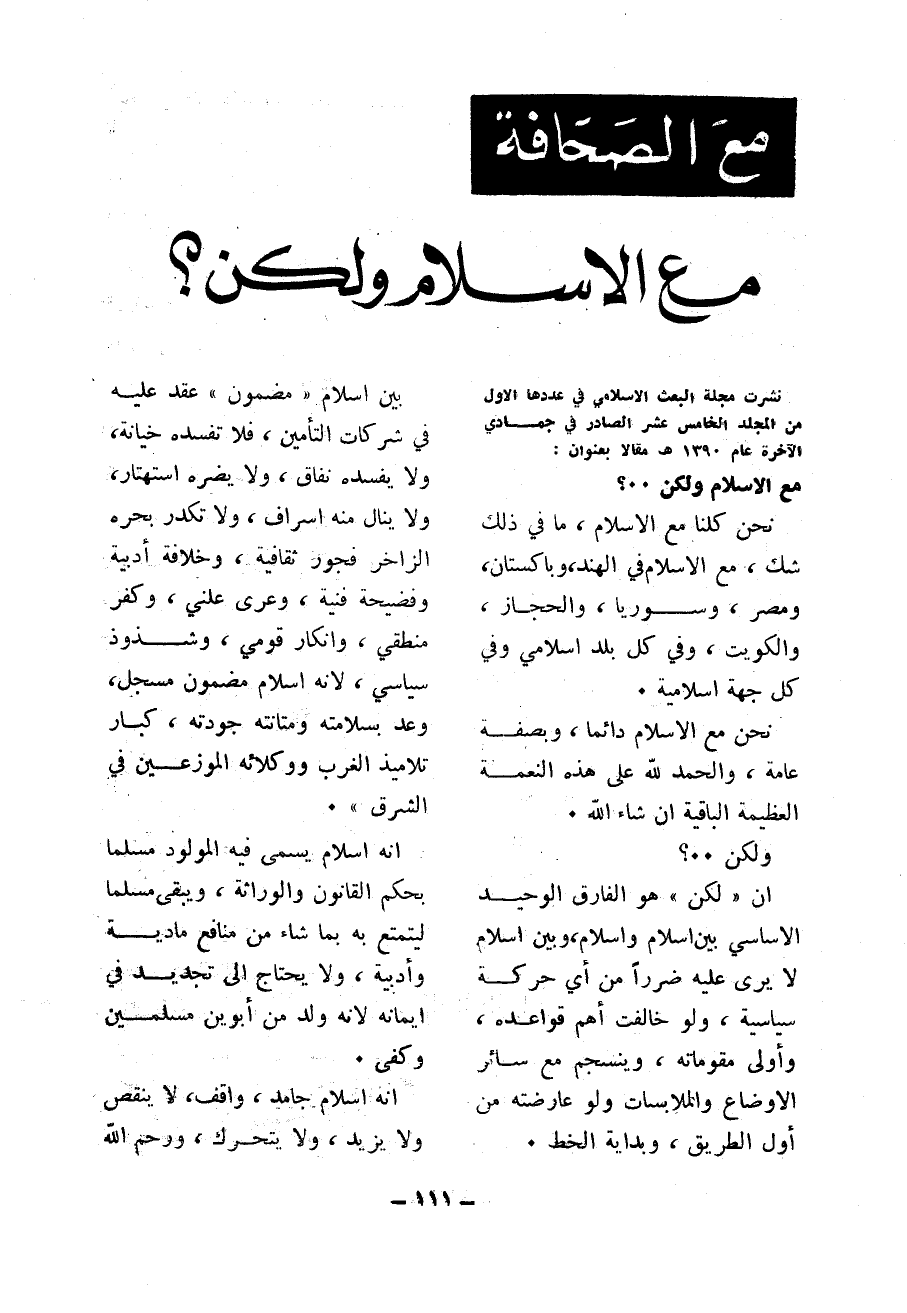 مَعَ الصَحَافة
مع الاسلام ولكن ؟
نشرت مجلة البعث الاسلامي في عددها الاول
من المجلد الخامس عشر الصادر في جمادي
الآخرة عام ١٣٩٠ هـ مقالا بعنوان :
مع الاسلام ولكن ٠٠؟
نحن كلنا مع الاسلام ، ما في ذلك
شك ، مع الاسلام في الهند،وباكستان،
ومصر ، وسوريا ، والحجاز ،
والكويت ، وفي كل بلد اسلامي وفي
كل جهة اسلامية ٠
نحن مع الاسلام دائما ، وبصفة
عامة ، والحمد لله على هذه النعمة
العظيمة الباقية ان شاء الله ٠
ولكن ٠٠؟
ان « لكن » هو الفارق الوحيد
الاساسي بين اسلام واسلام،وبين اسلام
لا يرى عليه ضرراً من أي حركة
سياسية ، ولو خالفت أهم قواعده ،
وأولى مقوماته ، وينسجم مع سائر
الاوضاع والملابسات ولو عارضته من
أول الطريق ، وبداية الخط ٠
بين اسلام « مضمون » عقد عليه
في شركات التأمين ، فلا تفسده خيانة،
ولا يفسده نفاق ، ولا يضره استهتار،
ولا ينال منه اسراف ، ولا تكدر بحره
الزاخر فجور ثقافية ، وخلافة أدبية
وفضيحة فنية ، وعرى علني ، وكفر
منطقي ، وانكار قومي ، وشذوذ
سياسي ، لانه اسلام مضمون مسجل،
وعد بسلامته ومتانته جودته ، كبار
تلاميذ الغرب ووكلائه الموزعين في
الشرق » ٠
انه اسلام يسمى فيه المولود مسلما
بحكم القانون والوراثة ، ويبقى مسلما
ليتمتع به بما شاء من منافع مادية
وأدبية ، ولا يحتاج الى تجديد في
ايمانه لانه ولد من أبوين مسلمين
وكفى ٠
انه اسلام جامد ، واقف، لا ينقص
ولا يزيد ، ولا يتحرك ، ورحم الله
– ١١١ –